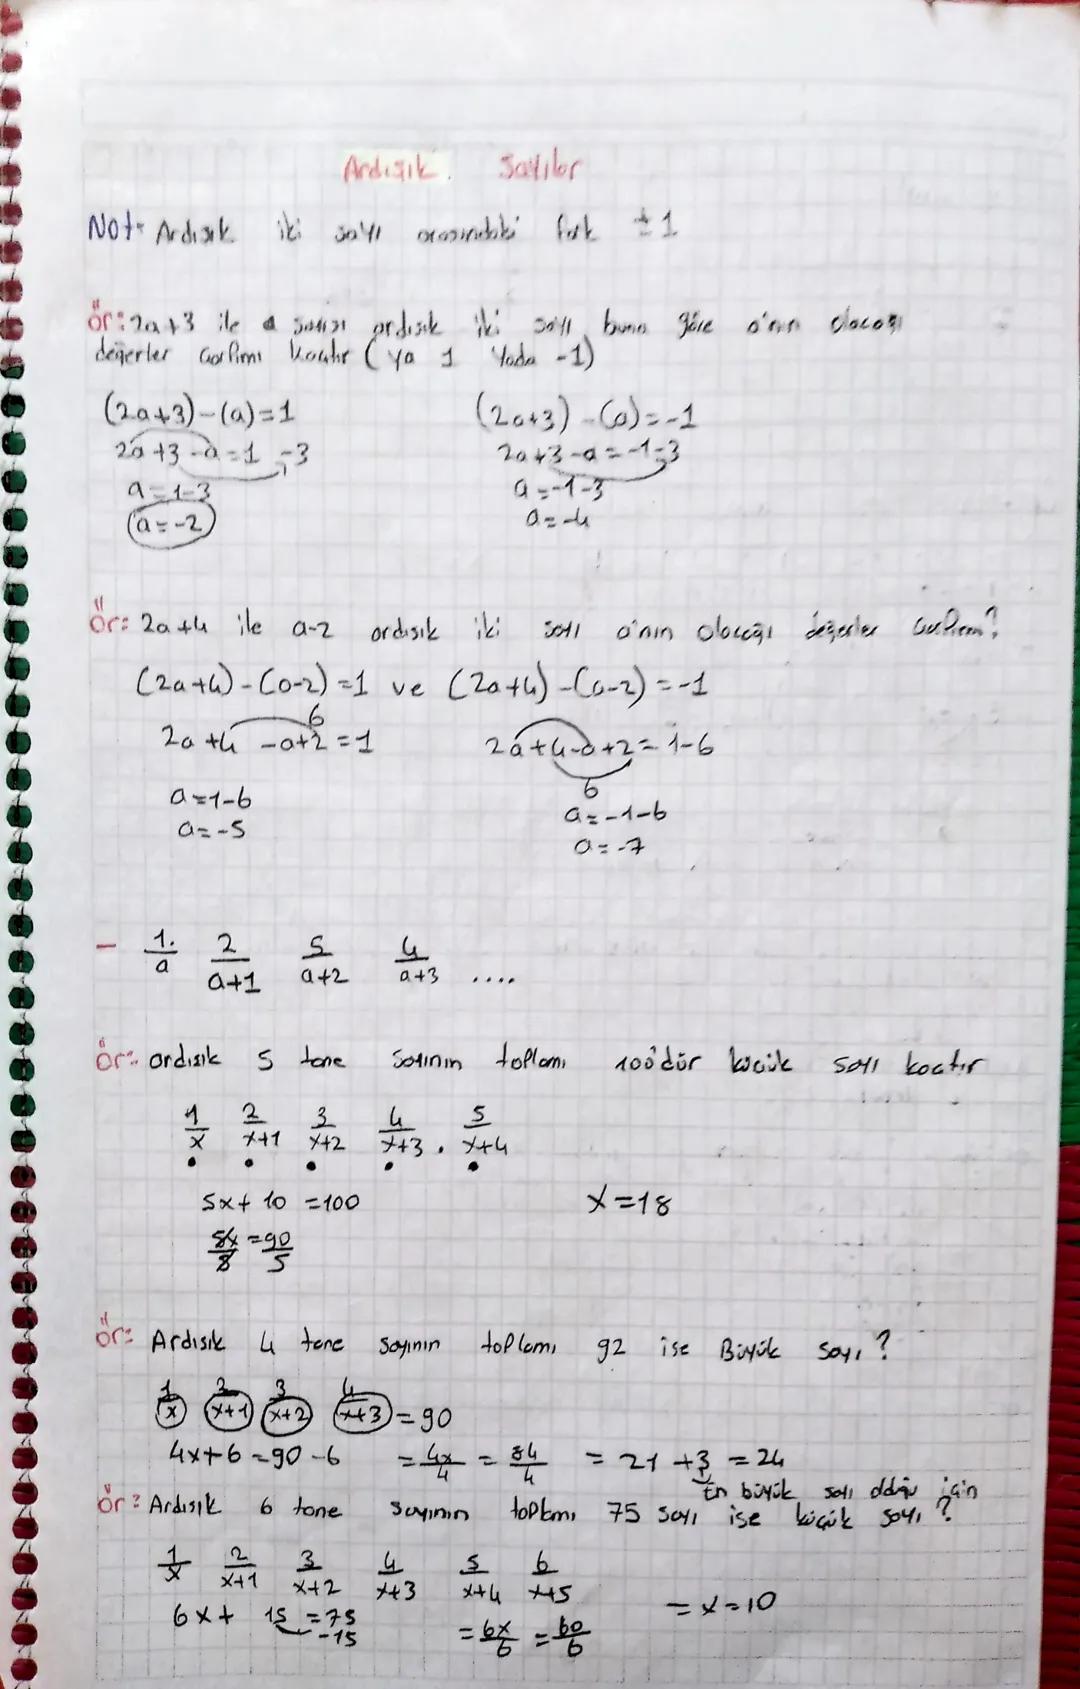 Ardışık Sayılar
Not: Ardışık iki sayı arasındaki fark ±1
Ör: 2a+3 ile a sayısı ardışık iki sayı buna göre a'nın olacağı
değerler çarpımı kaçtır (ya 1 yada -1)
(2a+3)-(a)=1 (2a+3)-(a)=-1
2a+3-a=1-3 2a+3-a=-1-3
a=1-3 a=-1-3
a=-2 a=-4
Ör: 2a+4 ile a-2 ardışık iki sayı a'nın olacağı değerler çarpımı?
(2a+4)-(a-2)=1 ve (2a+4)-(a-2)=-1
6
2a+4-a+2=1 2a+4-a+2=1-6
6
a=1-6 a=-1-6
a=-5 a=-7
- 1. 2 5 4
a a+1 a+2 a+3 ....
Ör: ardışık 5 tane sayının toplamı 100'dür küçük sayı kaçtır
1 2 3 4 5
x x+1 x+2 x+3 . x+4
5x+10=100 x=18
5x/8=90/5
Ör: Ardışık 4 tane sayının toplamı 92 ise Büyük sayı?
1 2 3 4
x x+1 x+2 x+3 =90
4x+6=90-6 =4x/4=84/4 =21+3=24
En büyük sayı olduğu için
Ör: Ardışık 6 tane sayının toplamı 75 sayı ise küçük sayı?
1 2 3 4 5 6
x x+1 x+2 x+3 x+4 x+5
6x+15=75 =x=10
-15 =6x/6=60/6